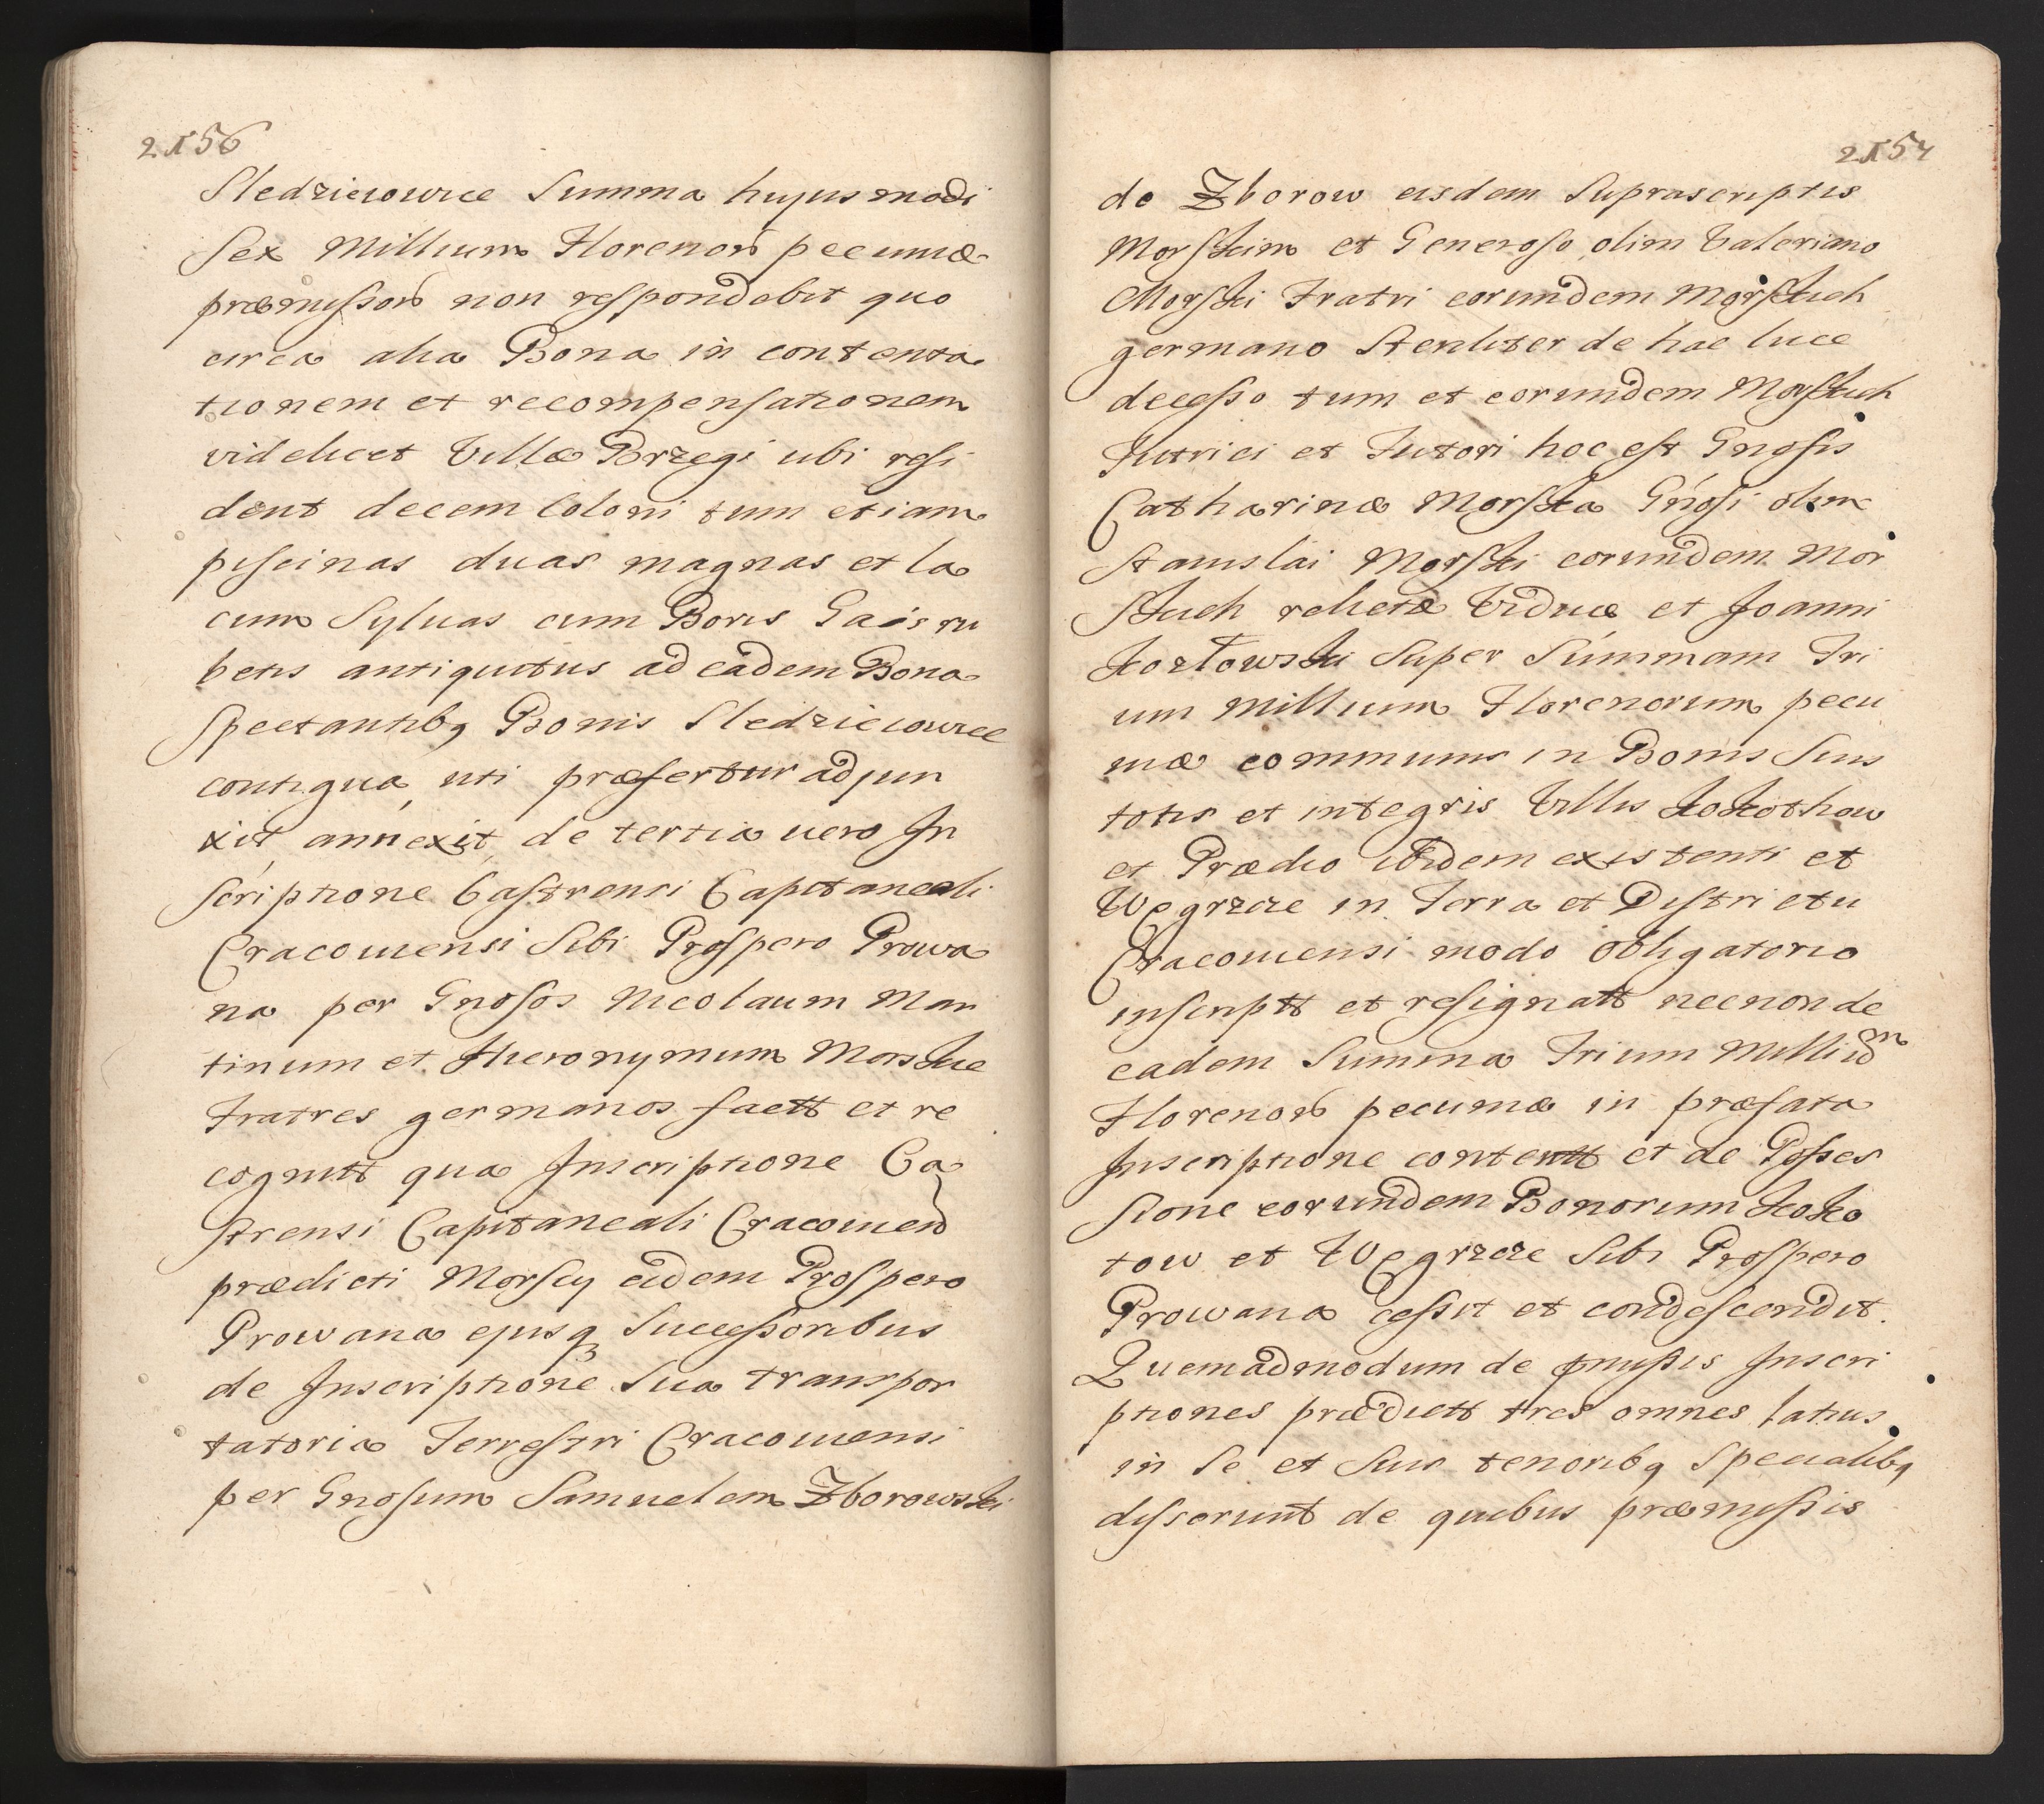 2156
Sledzieiowice Summa hujusmodi
sex Millium Florenor pecuniæ
præmissor non respondebit quo
circa alia Bona in contenta
tionem et recompensationem
videlicet Villæ Brzegi ubi resi
dent decem Coloni tum etiam
piscinas duas magnas et la
cum Sylvas cum Boris Gais ru
betis antiquitus ad eadem Bona
Spectantibq Bonis Sledzieiowice
contigua, uti præfertur adjun
xit annexit, de tertia vero In
scriptione Castrensi Capitaneali
Cracoviensi Sibi Prospero Prowa
na per Gnosos Nicolaum Mar
tinum et Hieronymum Morskie
Fratres germanos factt et re
cognitt qua Inscriptione Ca
strensi Capitaneali Cracovien
prædicti Morscy eidem Prospero
Prowana ejusq Successoribus
de Inscriptione Sua transpor
tatoria Terrestri Cracoviensi
per Gnosum Samuelem Zborowski
2157
de Zborow eisdem Suprascriptis
Morskim et Generoso olim Valeriano
Morski Fratri eorumdem Morskich
germano Steriliter de hac luce
decesso tum et eorumdem Morskich
Tutrici et Tutori hoc est Gnosis
Catharinæ Morska Gnosi olim
Stanislai Morski eorumdem Mor
skich relictæ Viduæ et Joanni
Kozłowski Super Summam Tri
um Millium Florenorum pecu
niæ communis in Bonis Suis
totis et integris Villis Kokothow
et Prædio ibidem existenti et
Węgrzcze in Terra et Districtu
Cracoviensi modo obligatorio
inscriptt et resignatt necnon de
eadem Summa Trium Milliu͠m
Florenor pecuniæ in præfata
Inscriptione contentt et de Posses
sione eorumdem Bonorum Koko
tow et Węgrzcze Sibi Prospero
Prowana cessit et condescendit.
Quemadmodum de pmissis Inscri
ptiones prædictt tres omnes latius
in Se et Suis tenoribq Specialibq
disserunt de quibus præmissis